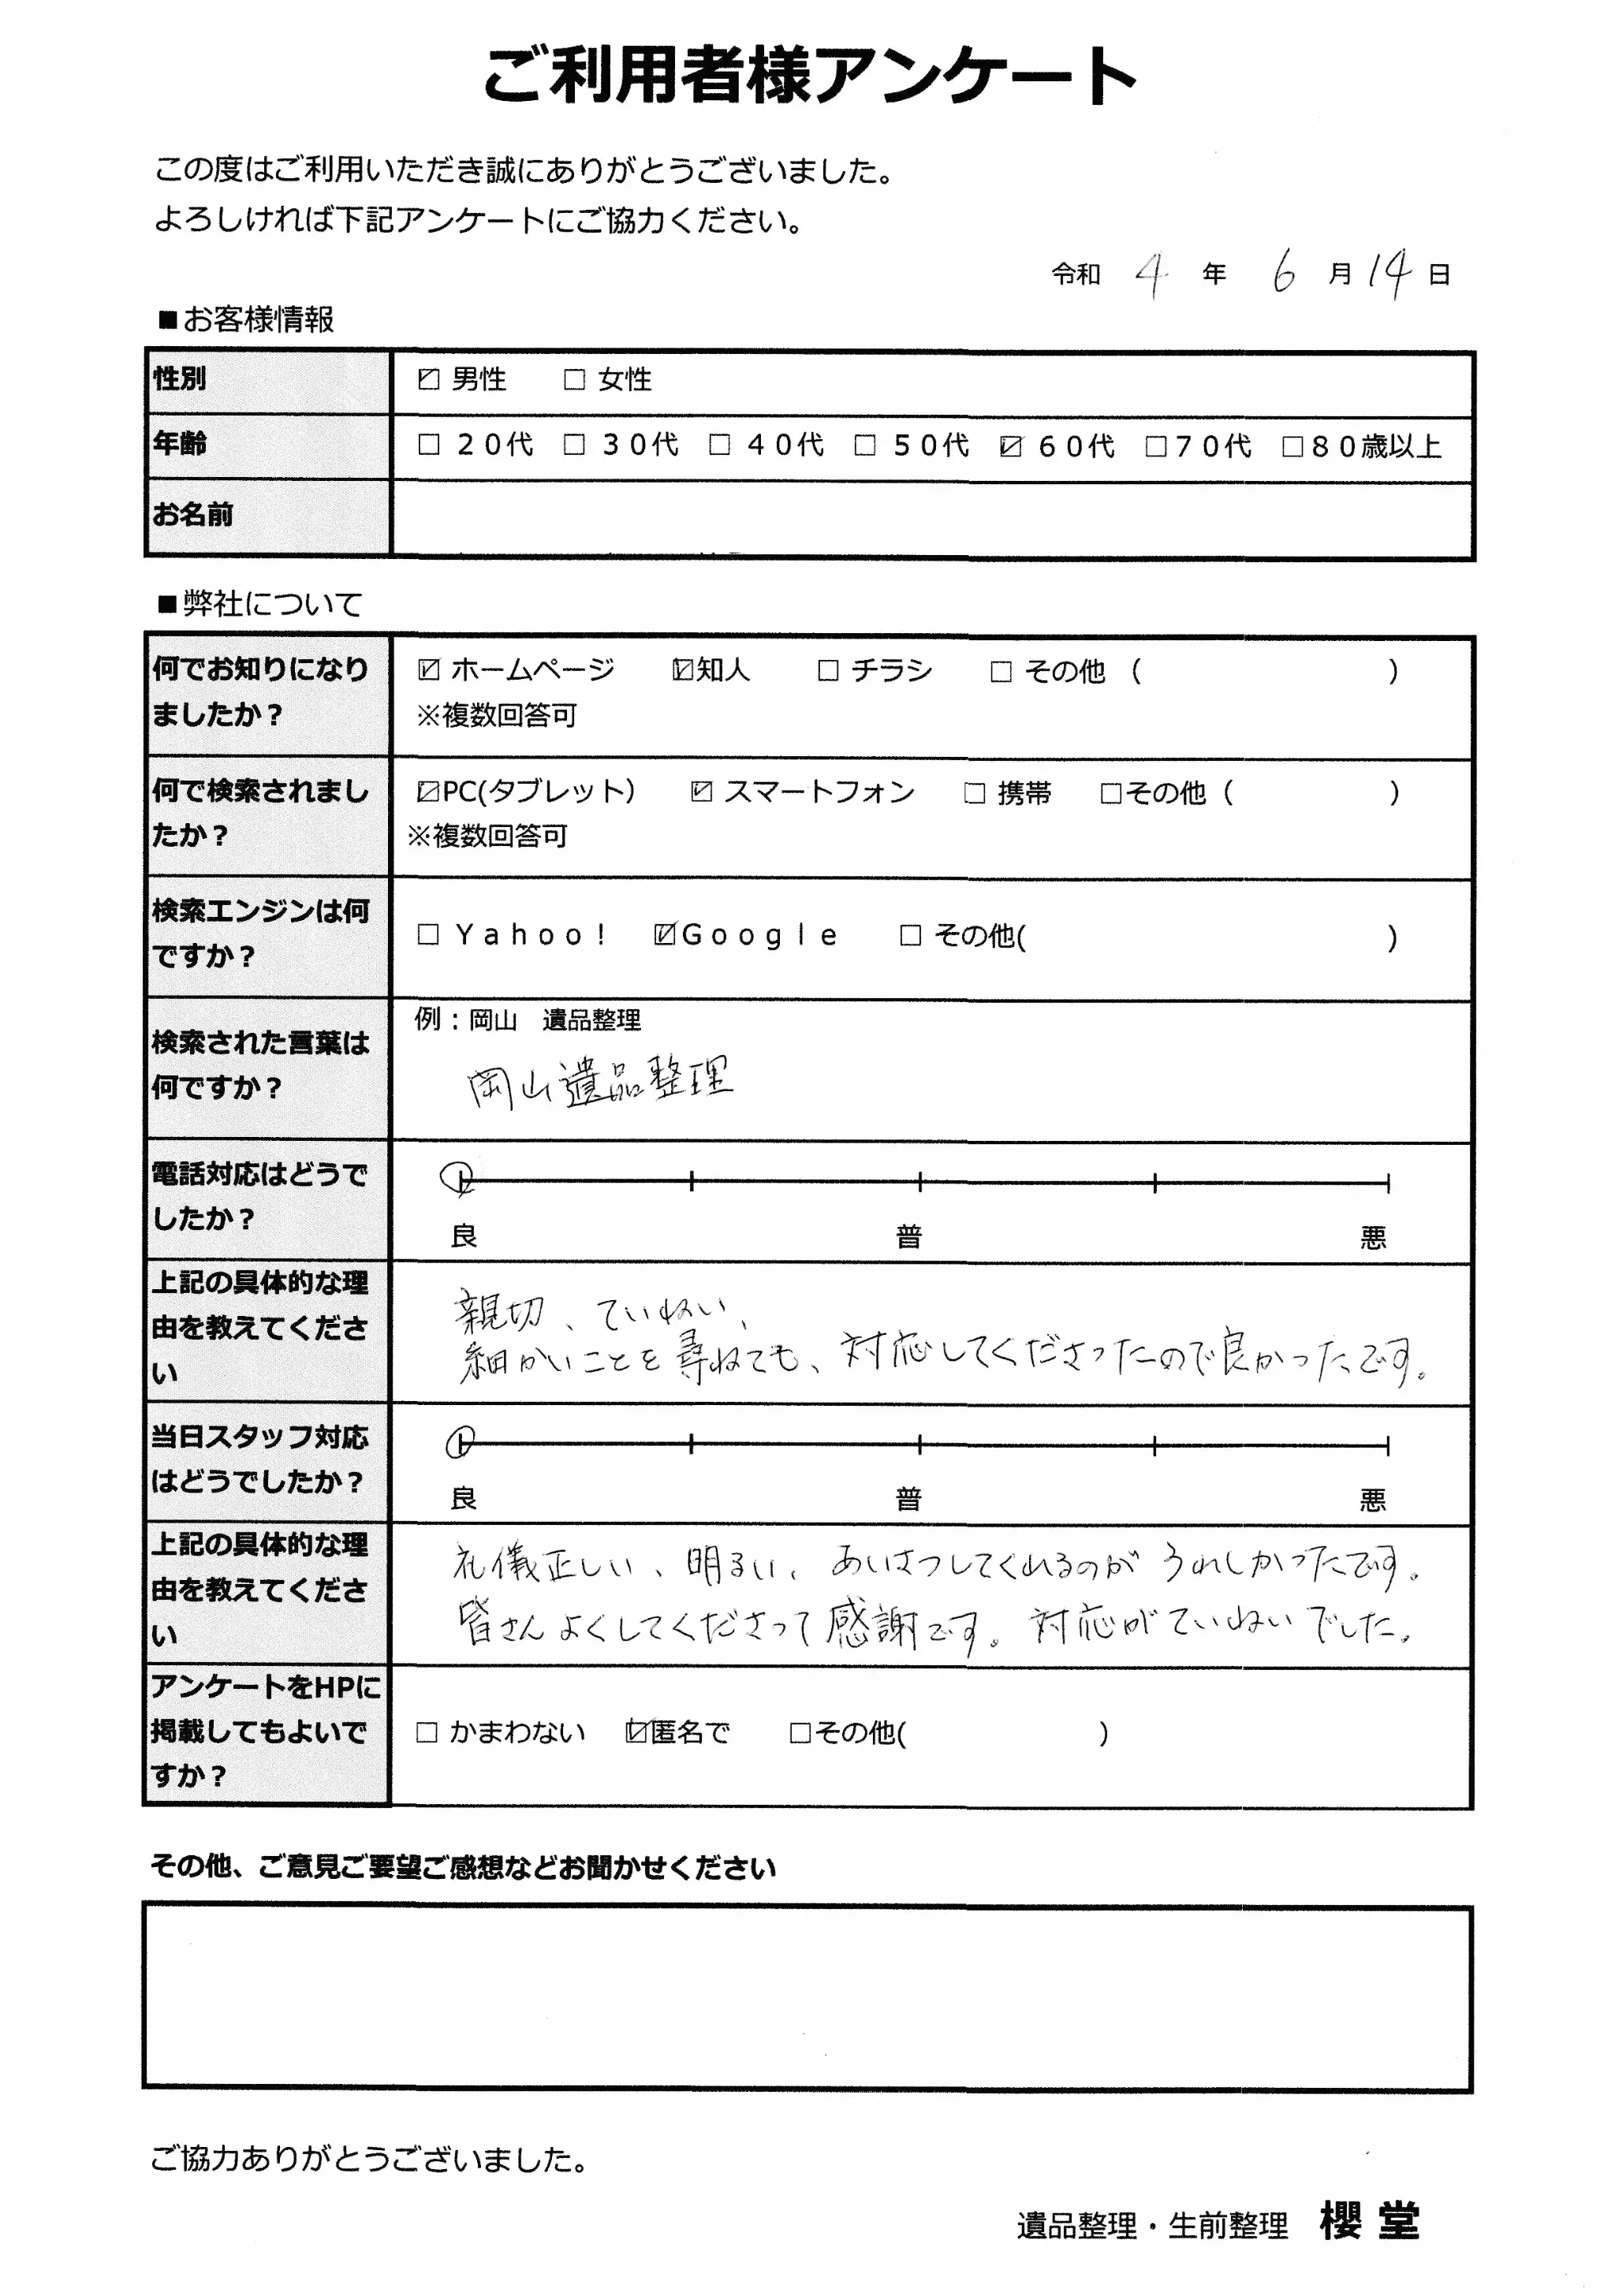 ご利用者様アンケート
この度はご利用いただき誠にありがとうございました。
よろしければ下記アンケートにご協力ください。
令和 4 年 6 月 14 日
■お客様情報
性別 ☑ 男性 □ 女性
年齢 □ 20代 □ 30代 □ 40代 □ 50代 ☑ 60代 □70代 □80歳以上
お名前
■弊社について
何でお知りになり
ましたか？
☑ ホームページ ☑知人 □ チラシ □ その他 （ ）
※複数回答可
何で検索されまし
たか？
☑PC(タブレット） ☑ スマートフォン □ 携帯 □その他（ ）
※複数回答可
検索エンジンは何
ですか？
□ Yahoo! ☑Google □ その他( )
検索された言葉は
何ですか？
例：岡山 遺品整理
岡山遺品整理
電話対応はどうで
したか？
良 普 悪
上記の具体的な理
由を教えてくださ
い
親切、ていねい、
細かいことを尋ねても、対応してくださったので良かったです。
当日スタッフ対応
はどうでしたか？
良 普 悪
上記の具体的な理
由を教えてくださ
い
礼儀正しい、明るい、あいさつしてくれるのが うれしかったです。
皆さんよくしてくださって感謝です。対応がていねいでした。
アンケートをHPに
掲載してもよいで
すか？
□ かまわない ☑匿名で □その他( )
その他、ご意見ご要望ご感想などお聞かせください
ご協力ありがとうございました。
遺品整理・生前整理 櫻堂